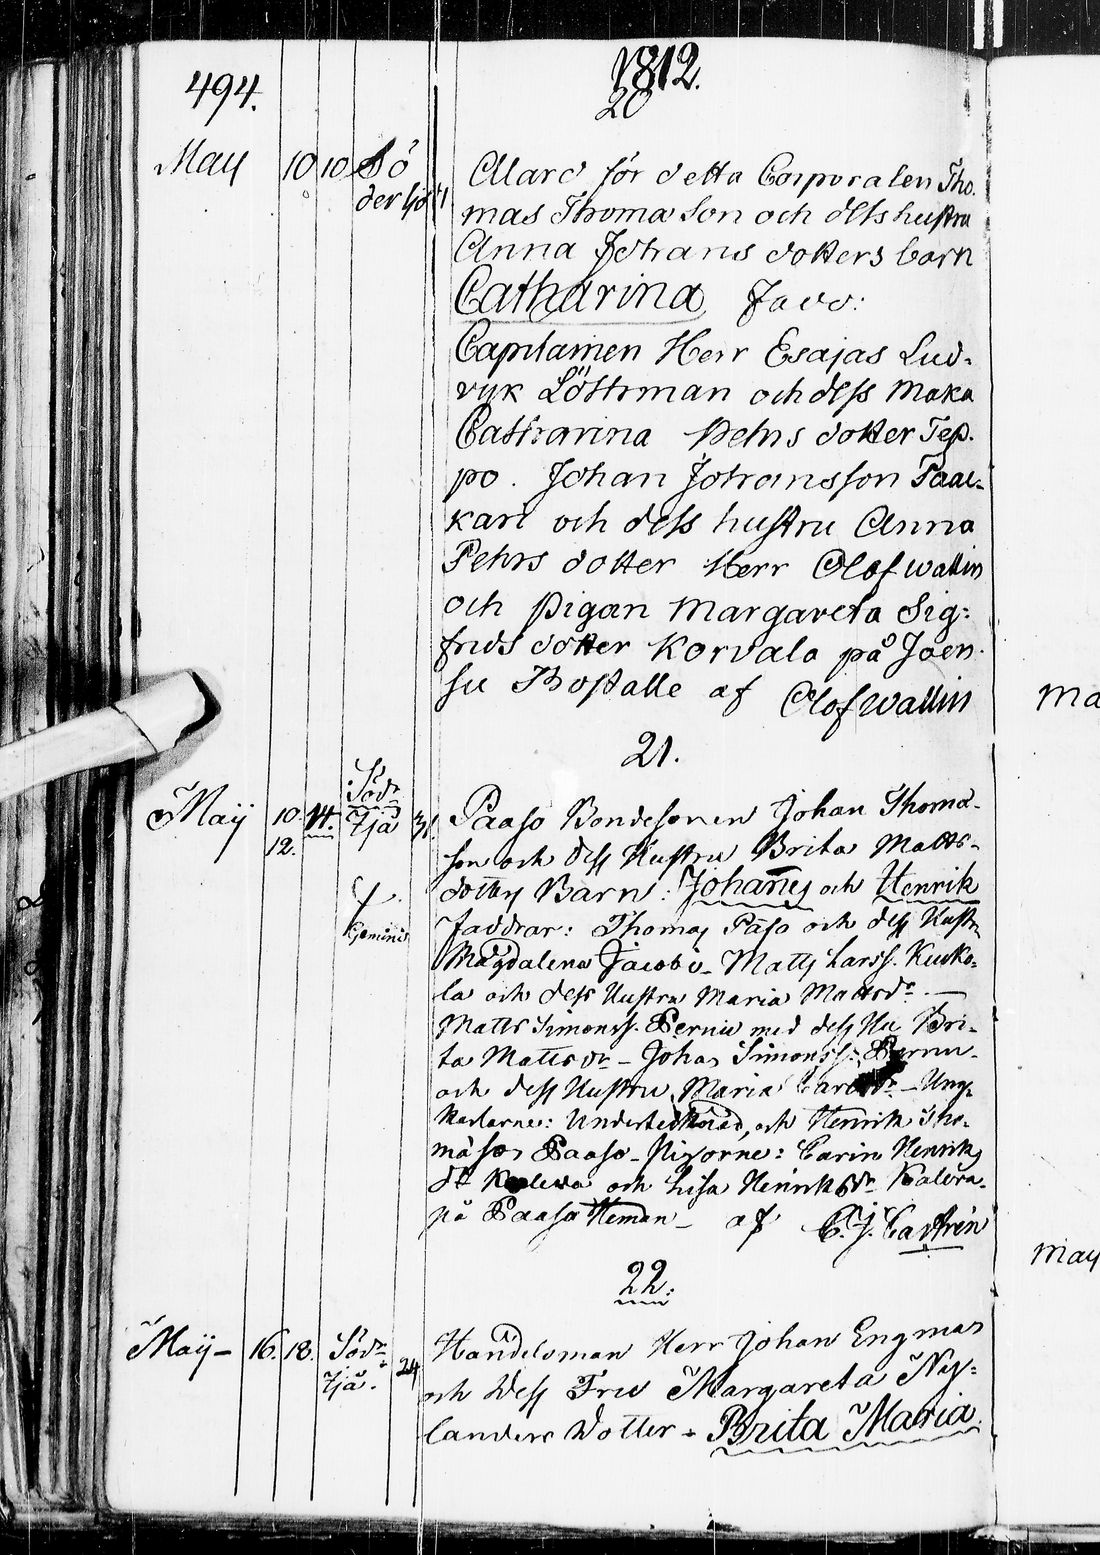 494.
1812.
20
May 10 10 Sö
der
Alard för detta Corporalen Tho.
mas Thomason och dess hustru
Anna Johans dotters barn
Catharina Fadd:
Capitainen Herr Esajas Lud-
vik Löthman och dess Maka
Catharina Pehrs dotter Tep.
po. Johan Johansson Paac-
kari och dess hustru Anna
Pehrs dotter Herr Olof Wallin
och Pigan Margareta Sig:
frids dotter Korvala på Joen.
su af Olof Wallin
21.
Maij 10. 12. 14. Söd. Tjä 31.
Gemini
Paaso Bondesonen Johan Thoma-
son och dess Hustru Brita Matts-
dotters Barn: Johannes och Henrik
Faddrar: Thomas Paso och dess Hustru
Magdalena Jacobd. Matts Larss. Kusko-
la och dess Hustru Maria Mattsdr. —
Matts Simonss. Pernu med dess Hu Bri-
ta Mattsdr - Johan Simonss. Pernu
och dess Hustru Maria Carlsdr. - Ung-
karlarne: och Henrik Tho-
mäson Paaso - Pigorne: Carin Henriks
dr Kaleva och Lisa Henriksdr Kaleva.
på Paaso Heman - af C. J. Castrén
22:
Maij - 16. 18. Södr. Tjä. 24
Handelsman Herr Johan Engman
och Dess Fru Margareta Ny-
landers Dotter - Brita Maria.
Ma
May